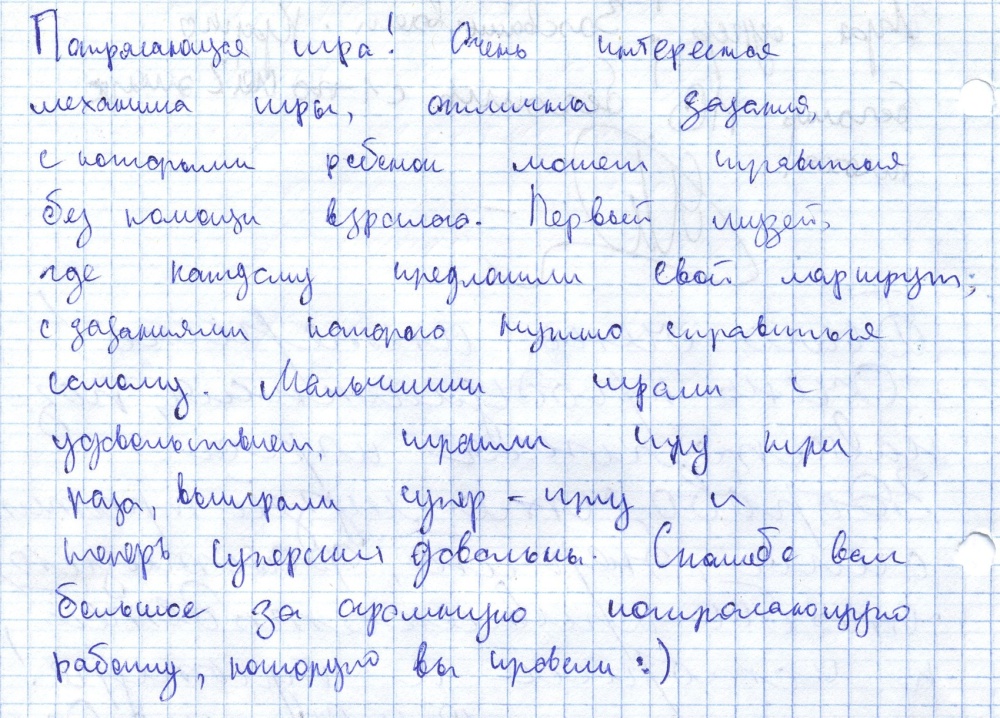 Потрясающая игра! Очень интересная
механика игры, отличные задания,
с которыми ребенок может справиться
без помощи взрослого. Первый музей,
где каждому предложили свой маршрут,
с заданиями которого нужно справиться
самому. Мальчишки играли с
удовольствием, прошли игру три
раза, выиграли супер-игру и
теперь суперски довольны. Спасибо вам
большое за огромную потрясающую
работу, которую вы провели :)